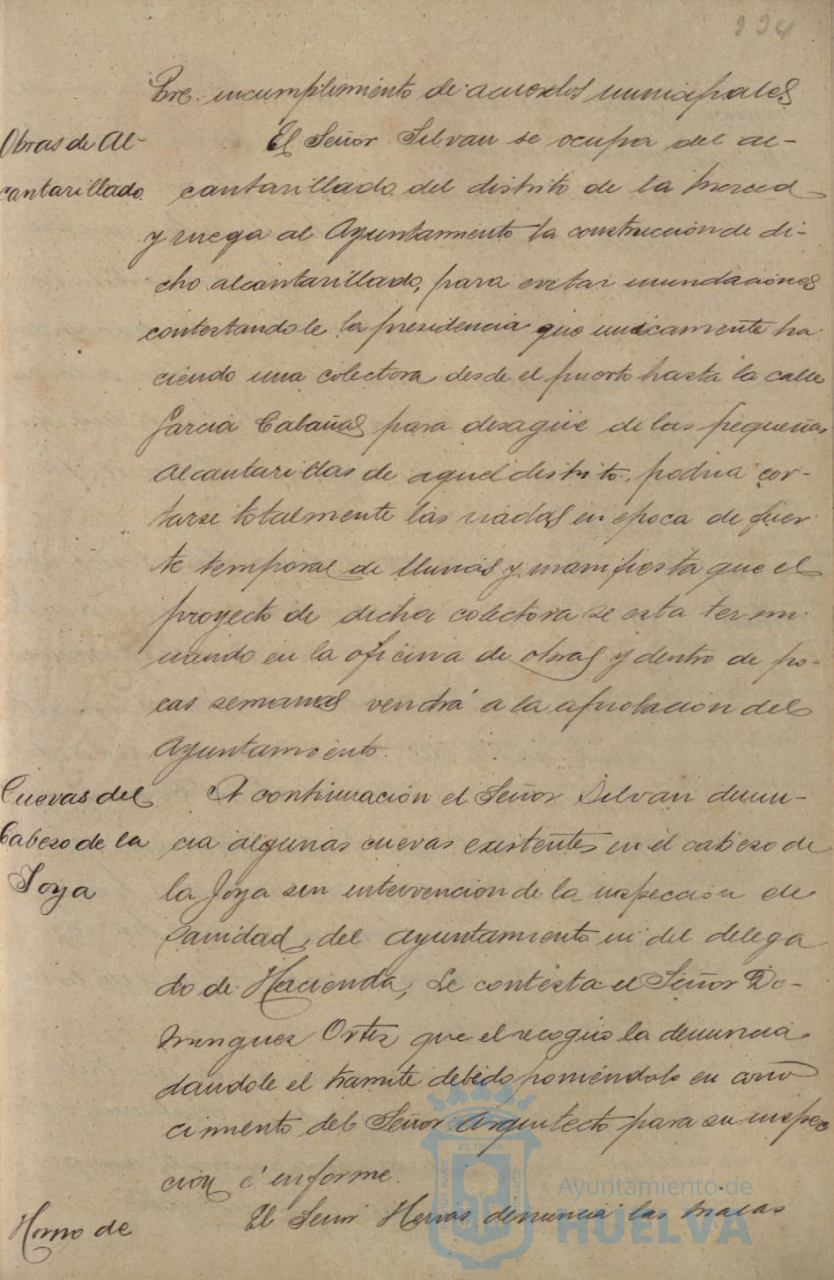 224
bre incumplimiento de acuerdos municipales
Obras de Al-
cantarillado
El Señor Silvan se ocupa del al-
cantarillado del distrito de la Merced
y ruega al Ayuntamiento la construccion de di-
cho alcantarillado, para evitar inundaciones
contestandole la presidencia que unicamente ha-
ciendo una colectora desde el puerto hasta la calle
Garcia Cabañas para desagüe de las pequeñas
alcantarillas de aquel distrito, podria cor-
tarse totalmente las riadas en epoca de fuer-
te temporal de lluvias y manifiesta que el
proyecto de dicha colectora se esta termi-
nando en la oficina de obras y dentro de po-
cas semanas vendrá a la aprobacion del
Ayuntamiento.
Cuevas del
Cabezo de la
Joya
A continuación el Señor Silvan denun-
cia algunas cuevas existentes en el cabezo de
la Joya sin intervencion de la inspección de
Sanidad, del ayuntamiento ni del delega
do de Hacienda, Le contesta el Señor Do-
minguez Ortiz que el recogio la denuncia
dandole el tramite debido poniéndolo en cono
cimiento del Señor Arquitecto para su inspec
ción é informe.
Horno de
El Señor Hervas denuncia las malas
Ayuntamiento de
HUELVA